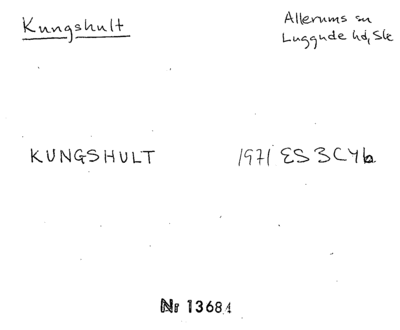 Kungshult
Allerums sn
Luggude hd, Ske
KUNGSHULT 1971 ES 3C4b
Nr 13684